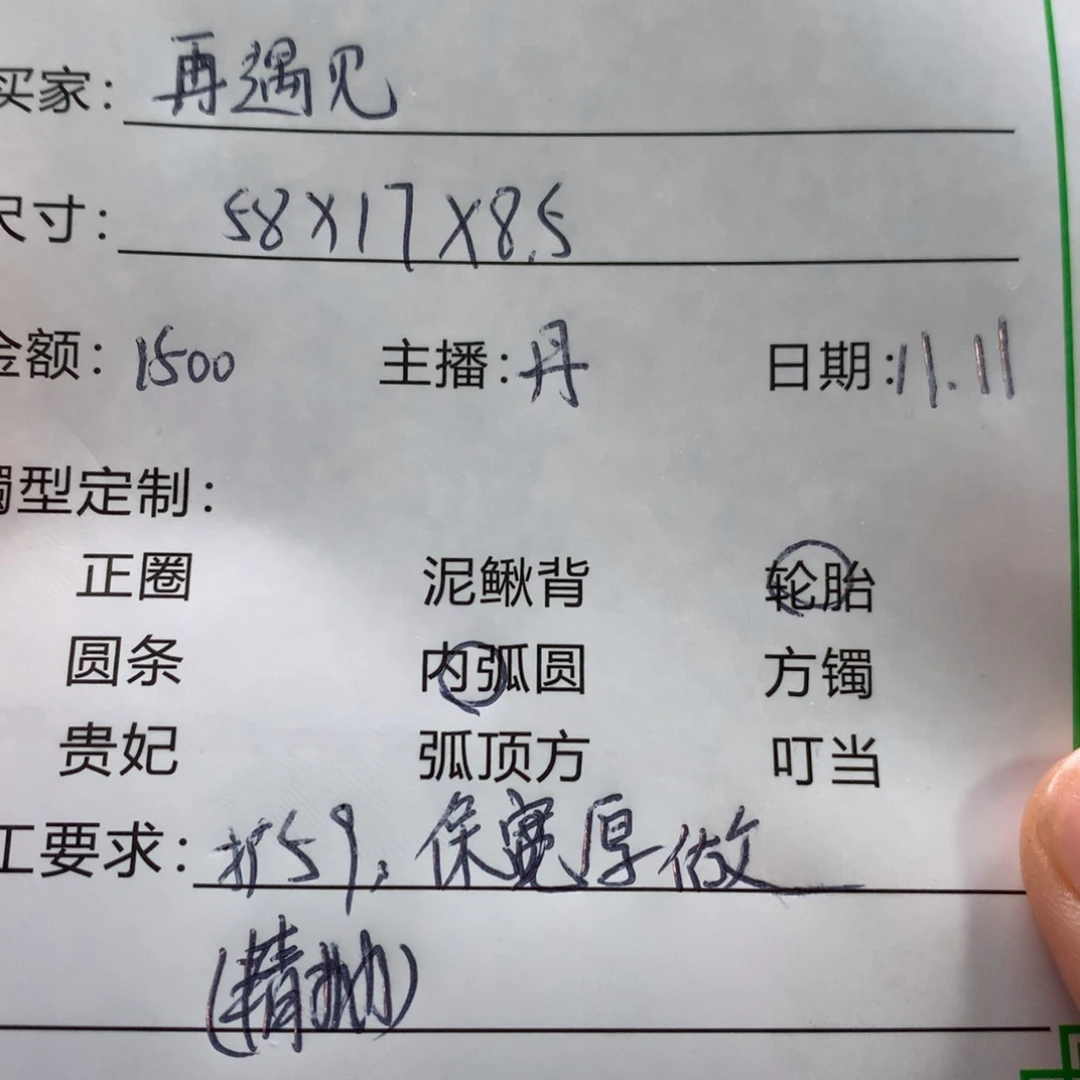 买家：再遇见
尺寸：58X17X8.5
金额：1500 主播：丹 日期：11.11
镯型定制：
正圈 泥鳅背 轮胎
圆条 内弧圆 方镯
贵妃 弧顶方 叮当
工要求：扩59，保宽厚做
（精抛）